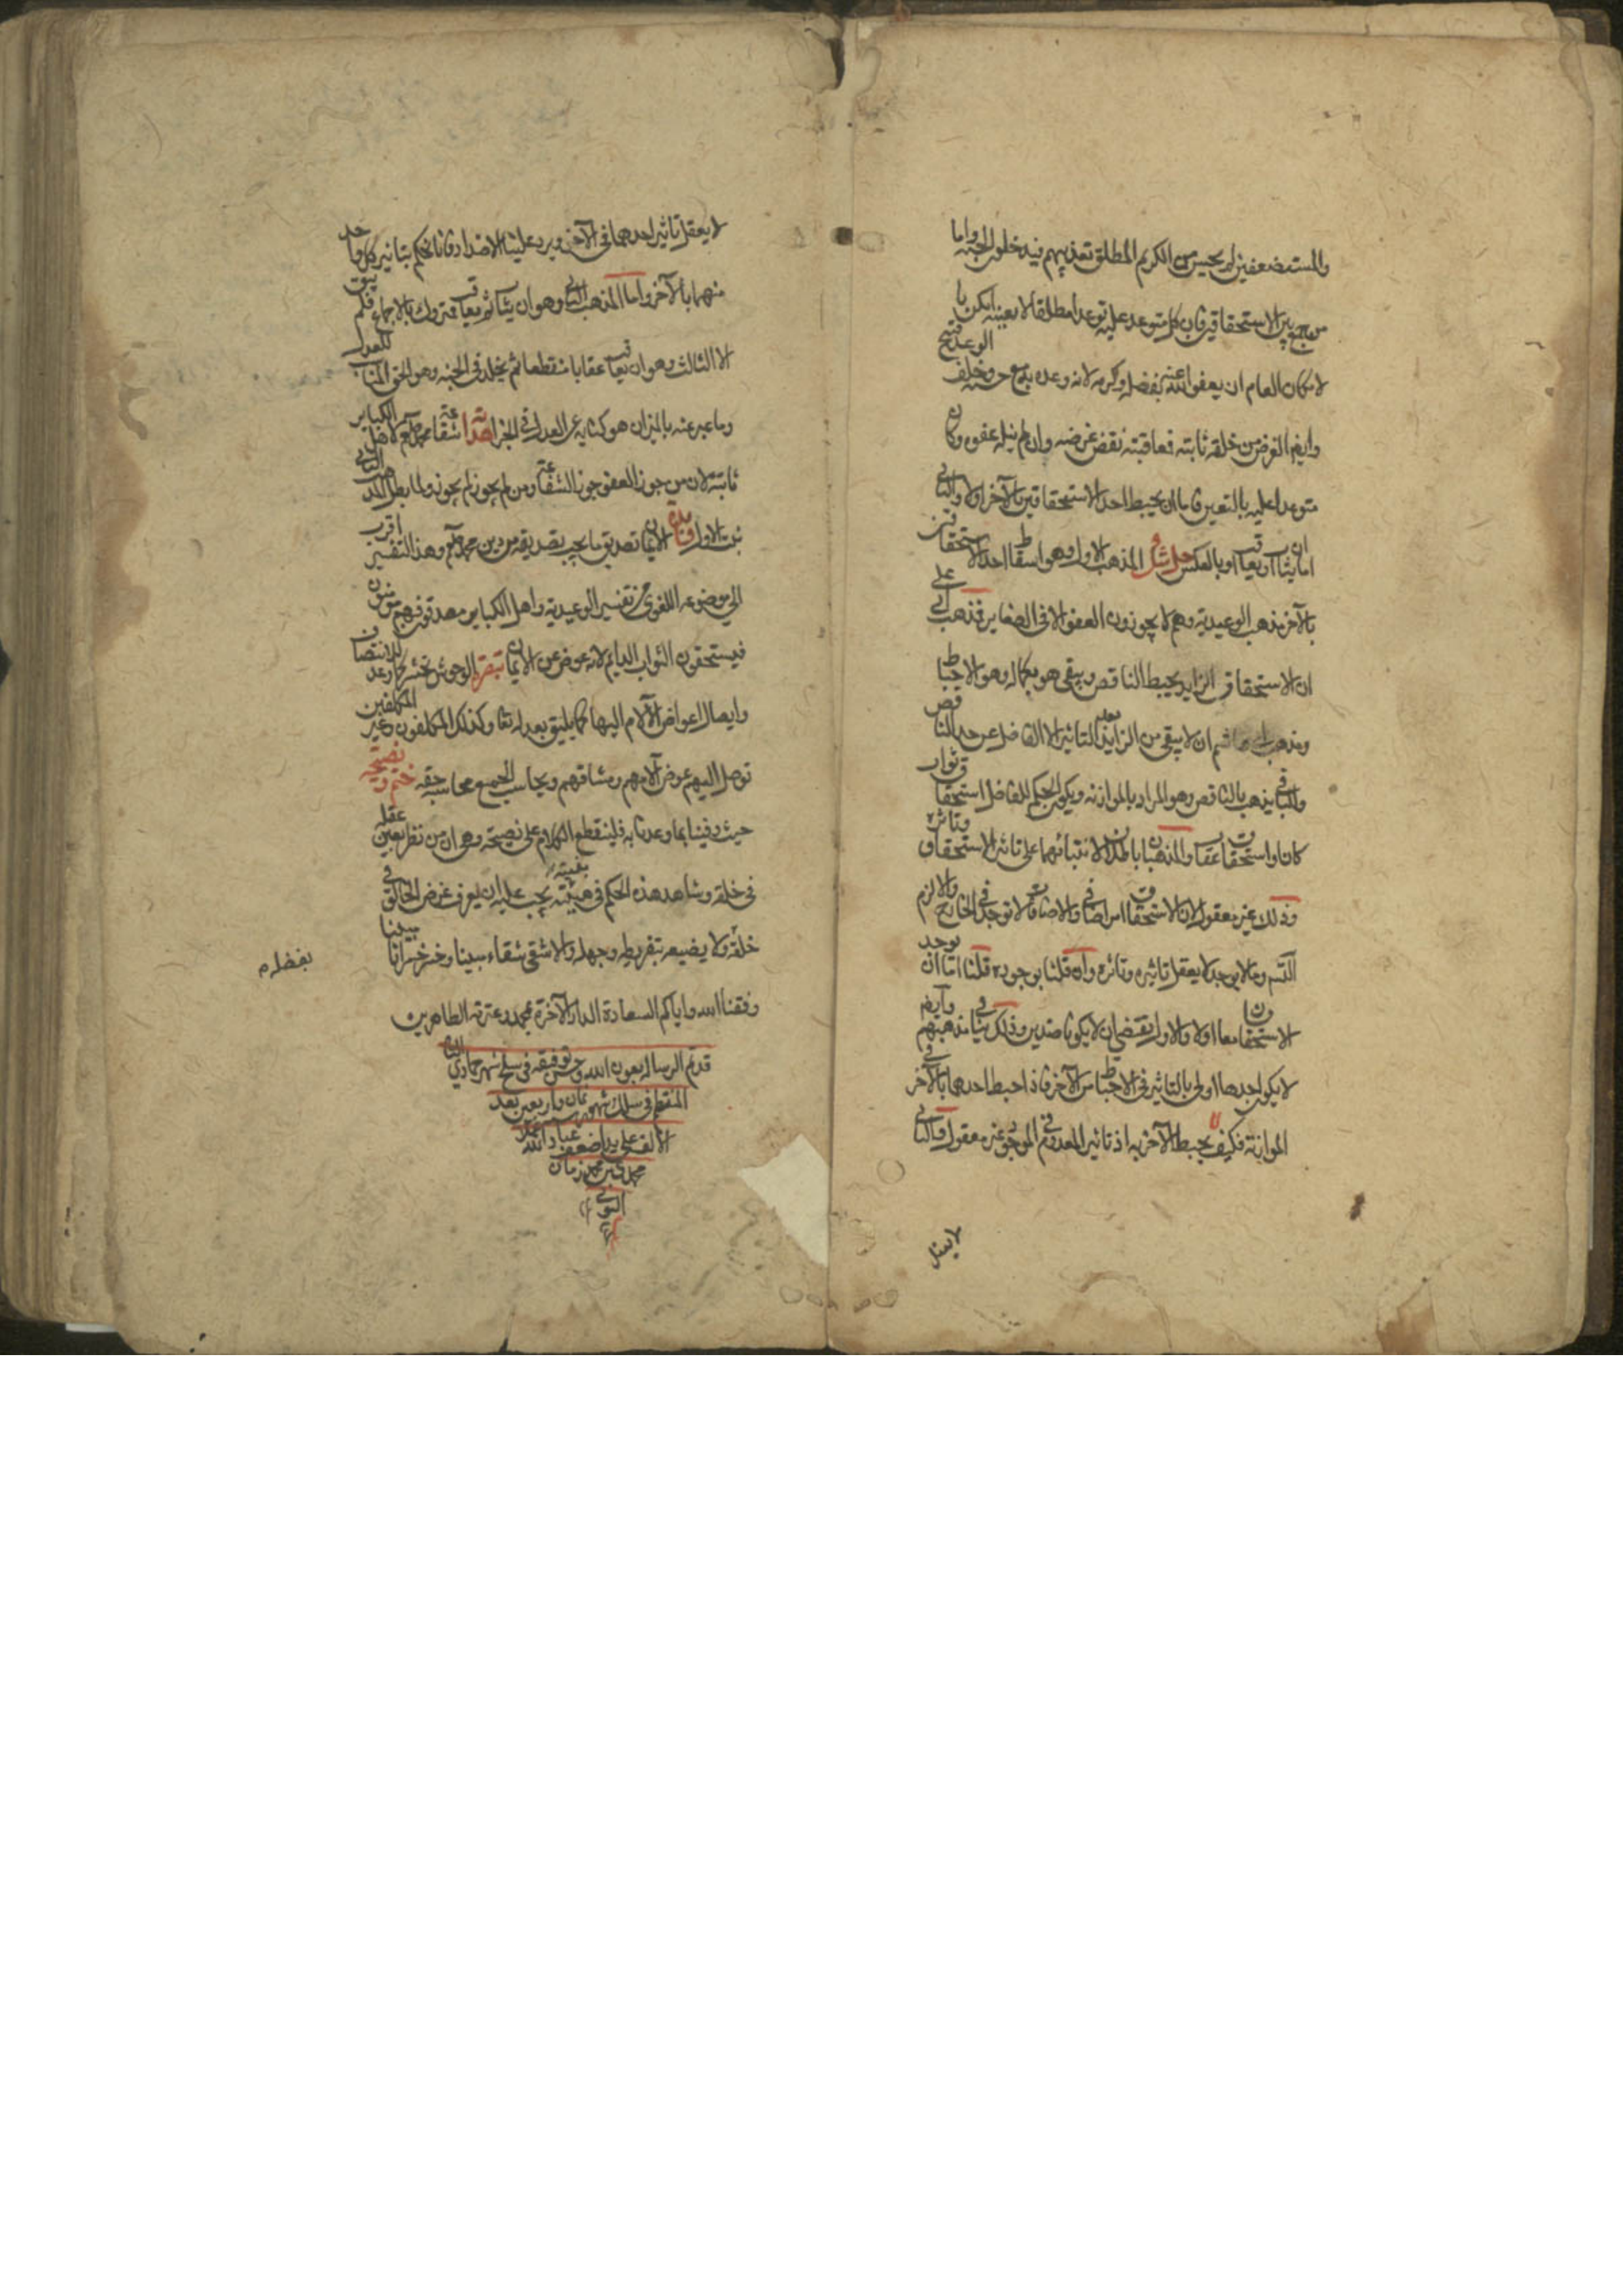 والمستضعفين لم يحسن من الكريم المطلق تعذيبهم فيدخلون الجنة واما
من جمع بين الاستحقاقين فان كان متوعدا عليه توعدا مطلقا لا بعينه امكن با
لامكان العام ان يعفو الله عنه بفضله وكرمه لانه وعده مع حسنه وخلف الوعد قبيح
وايضا الغرض من خلقه ثابته فعاقبته نقض غرضه وان لم نيله عفوه وكان
متوعدا عليه بالتعيين فاما ان يحبط احد الاستحقاقين بالآخر اولا والثاني
اما يثاب او يعاقب او بالعكس المذهب الاول وهو اسقاط احد الاستحقاقين
بالآخر مذهب الوعيدية وهم لا يجوزون العفو الا في الصغاير فذهب ابي علي
ان الاستحقاق الزايد يحبط الناقص ويبقى هو بكماله وهو الاحباط
ومذهب ابي هاشم ان لا يبقى من الزايد بعد التاثير الا الفاضل عن حد الناقص
والباقي يذهب بالناقص وهو المراد بالموازنه ويكون الحكم للفاضل استحقاق ثواب
كان او استحقاق عقاب والمذهبان باطلان لابتنائهما على تاثير الاستحقاق وتاثره
وذلك غير معقول لان الاستحقاق امر اضافي والاضافات لا توجد في الخارج والا لزم
التسـ وما لا يوجد لا يعقل تاثيره وتاثره وان قلنا بوجوده قلنا اما ان يوجد
الاستحقاقان معا اولا والاول يقتضي ان لا يكونا ضدين وذلك ينافي مذهبهم وايضا
لا يكون احدهما اولى بالتاثير في الاحباط من الآخر فاذا احبط احدهما بالآخر في
الموازنة فكيف يحبط الآخر به اذ تاثير المعدوم في الموجود غير معقول والثاني
لا يعقل
لا يعقل تاثير احدهما في الآخر ويرد علينا الاضداد فانا نحكم بتاثير كل واحد
منهما بالآخر واما المذهب الثاني وهو ان يثاب ثم يعاقب متروك بالاجماع فلم يبق
الا الثالث وهو ان يعاقب عقابا منقطعا ثم يخلد في الجنة وهو الحق المناسب للعدل
وما عبر عنه بالميزان هو كناية عن العدل في الجزا شفاعة محمد صلعم لاهل الكباير
ثابتة لان من جوز العفو جوز الشفاعة ومن لم يجوز لم يجوز ولما بطل المذهب الثاني
ثبت الاول فائدة الايمان تصديق ما يجب تصديقه من دين محمد صلعم وهذا التفسير اقرب
الى موضوعه اللغوي من تفسير الوعيدية واهل الكباير مصدقون فهم مؤمنون
فيستحقون الثواب الدايم لانه عوض عن الايمان تبصرة الوحوش تحشر كما وعد للانتصاف
وايصال اعواض الآلام اليها كما يليق بعدله تعا وكذلك المكلفون وغير المكلفين
توصل اليهم عوض آلامهم ومشاقهم ويحاسب الجميع محاسبة حقه ختم ونصيحة
حيث وفينا بما وعدنا به فلينقطع الكلام على نصيحة وهي ان من نظر بعين عقله
في خلقه وشاهد هذه الحكم في بنيته يجب عليه ان يعرف غرض الخالق في
خلقه ولا يضيعه بتفريطه وجهله والا شقي شقاء مبينا وخسر خسرانا مبينا
بفضله م
وفقنا الله واياكم السعادة الدار الآخرة بمحمد وعترته الطاهرين
قد تم الرسالة بعون الله وحسن توفيقه في سلخ شهر جمادي الثاني
المنتظم في سلك شهور سنة ثمان واربعين بعد
الالف على يد اضعف عباد الله
محمد بن محمد زمان